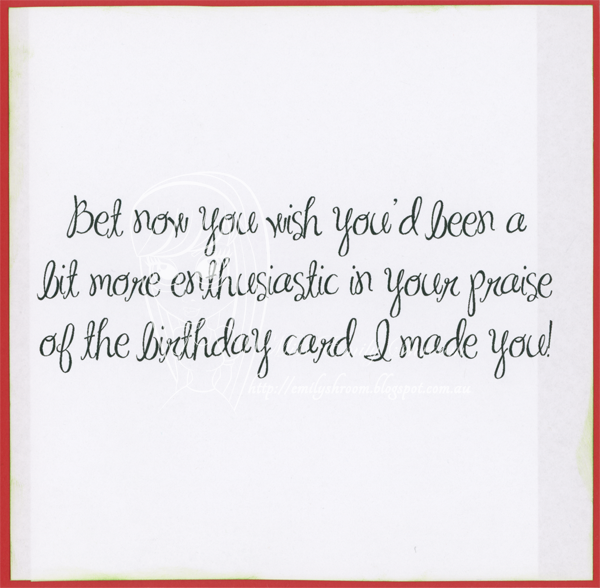 Bet now you wish you'd been a
bit more enthusiastic in your praise
of the birthday card I made you!
http://emilyshroom.blogspot.com.au